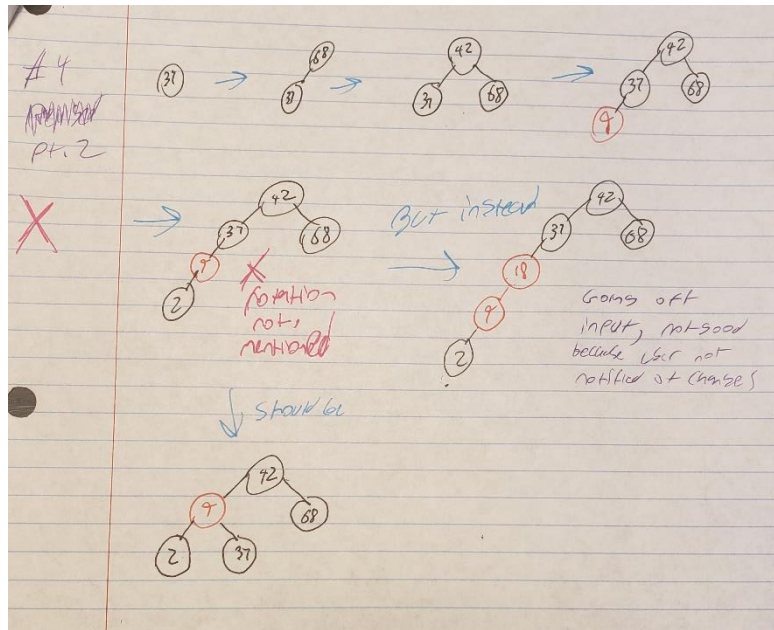 #4
pt. 2
37
68
37
42
37
68
42
37
68
9
X
42
37
68
9
2
X
rotation
not,
mentioned
But instead
42
37
68
18
9
2
Going off
input, not good
because user not
notified of changes
should be
42
9
68
2
37